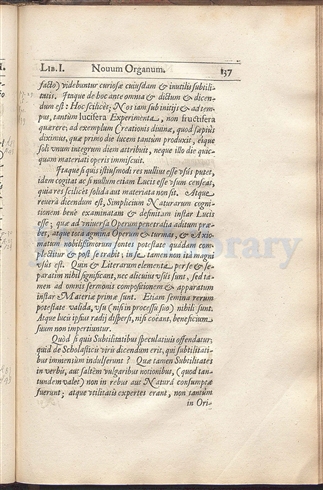 LIB. I. Novum Organum. 137
facto) videbuntur curiosæ cuiusdam & inutilis subtili-
tatis. Itaque de hoc ante omnia & dictum & dicen-
dum est: Hoc scilicet; Nos iam sub initijs & ad tem-
pus, tantùm lucifera Experimenta, non fructifera
quærere; ad exemplum Creationis divinæ, quod sæpiùs
diximus, quæ primo die lucem tantùm produxit, eique
soli vnum integrum diem attribuit, neque illo die quic-
quam materiati operis immiscuit.
Itaque si quis istiusmodi res nullius esse vsûs putet,
idem cogitat ac si nullum etiam Lucis esse vsum censeat,
quia res scilicet solida aut materiata non sit. Atque
reuerâ dicendum est, Simplicium Naturarum cogni-
tionem benè examinatam & definitam instar Lucis
esse; quæ ad vniversa Operum penetralia aditum præ-
bet, atque tota agmina Operum & turmas, & Axio-
matum nobilissimorum fontes potestate quadam com-
plectitur & post se trahit; in se tamen non ita magni
vsûs est. Quin & Literarum elementa per se & se-
paratim nihil significant, nec alicuius vsûs sunt, sed ta-
men ad omnis sermonis compositionem & apparatum
instar Materiæ primæ sunt. Etiam semina rerum
potestate valida, vsu (nisi in processu suo) nihili sunt.
Atque lucis ipsius radij dispersi, nisi coëant, beneficium
suum non impertiuntur.
Quòd si quis Subtilitatibus speculatiuis offendatur;
quid de Scholasticis viris dicendum erit, qui subtilitati-
bus immensùm indulserunt? Quæ tamen Subtilitates
in verbis, aut saltèm vulgaribus notionibus, (quod tan-
tundem valet) non in rebus aut Naturâ consumptæ
fuerunt; atque vtilitatis expertes erant, non tantùm
in Ori-